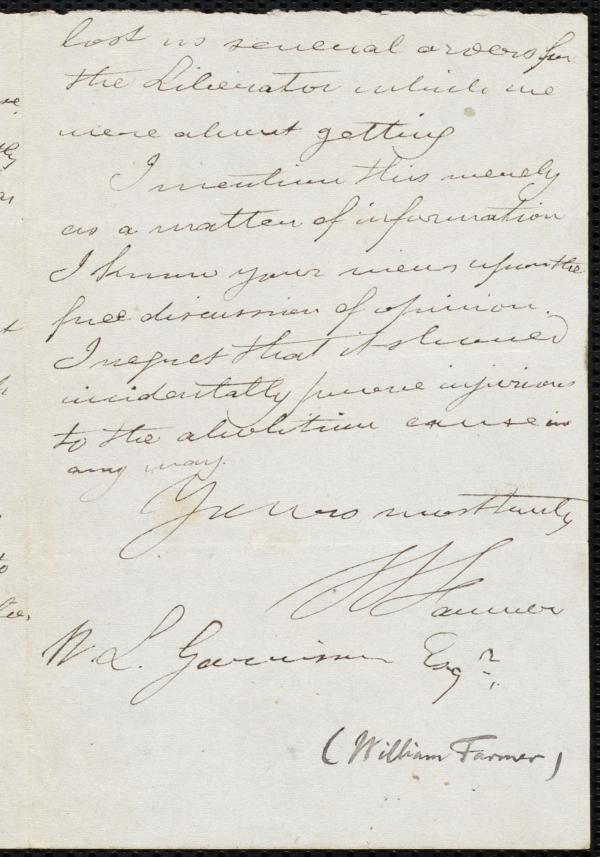 lost us several orders for
the Liberator which we
were about getting
I mention this merely
as a matter of information
I know your views upon the
free discussion of opinion.
I regret that it should
incidentally prove injurious
to the abolition cause in
any way.
Yours most truly
W Farmer
W. L. Garrison Esqr.
(William Farmer)